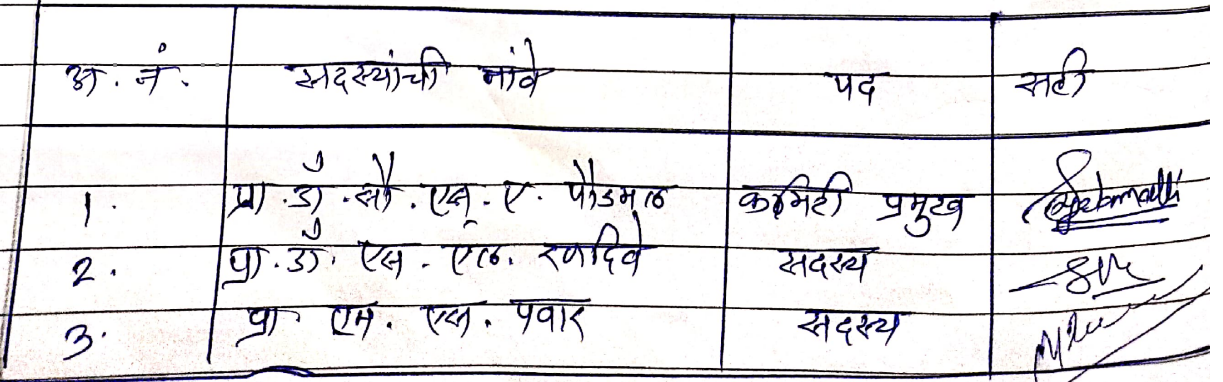 अ. नं. सदस्यांची नांवे पद सही
1. प्रा. डॉ. सौ. एस. ए. पौडमल कमिटी प्रमुख
2. प्रा. डॉ. एस. एल. रणदिवे सदस्य
3. प्रा. एम. एस. पवार सदस्य